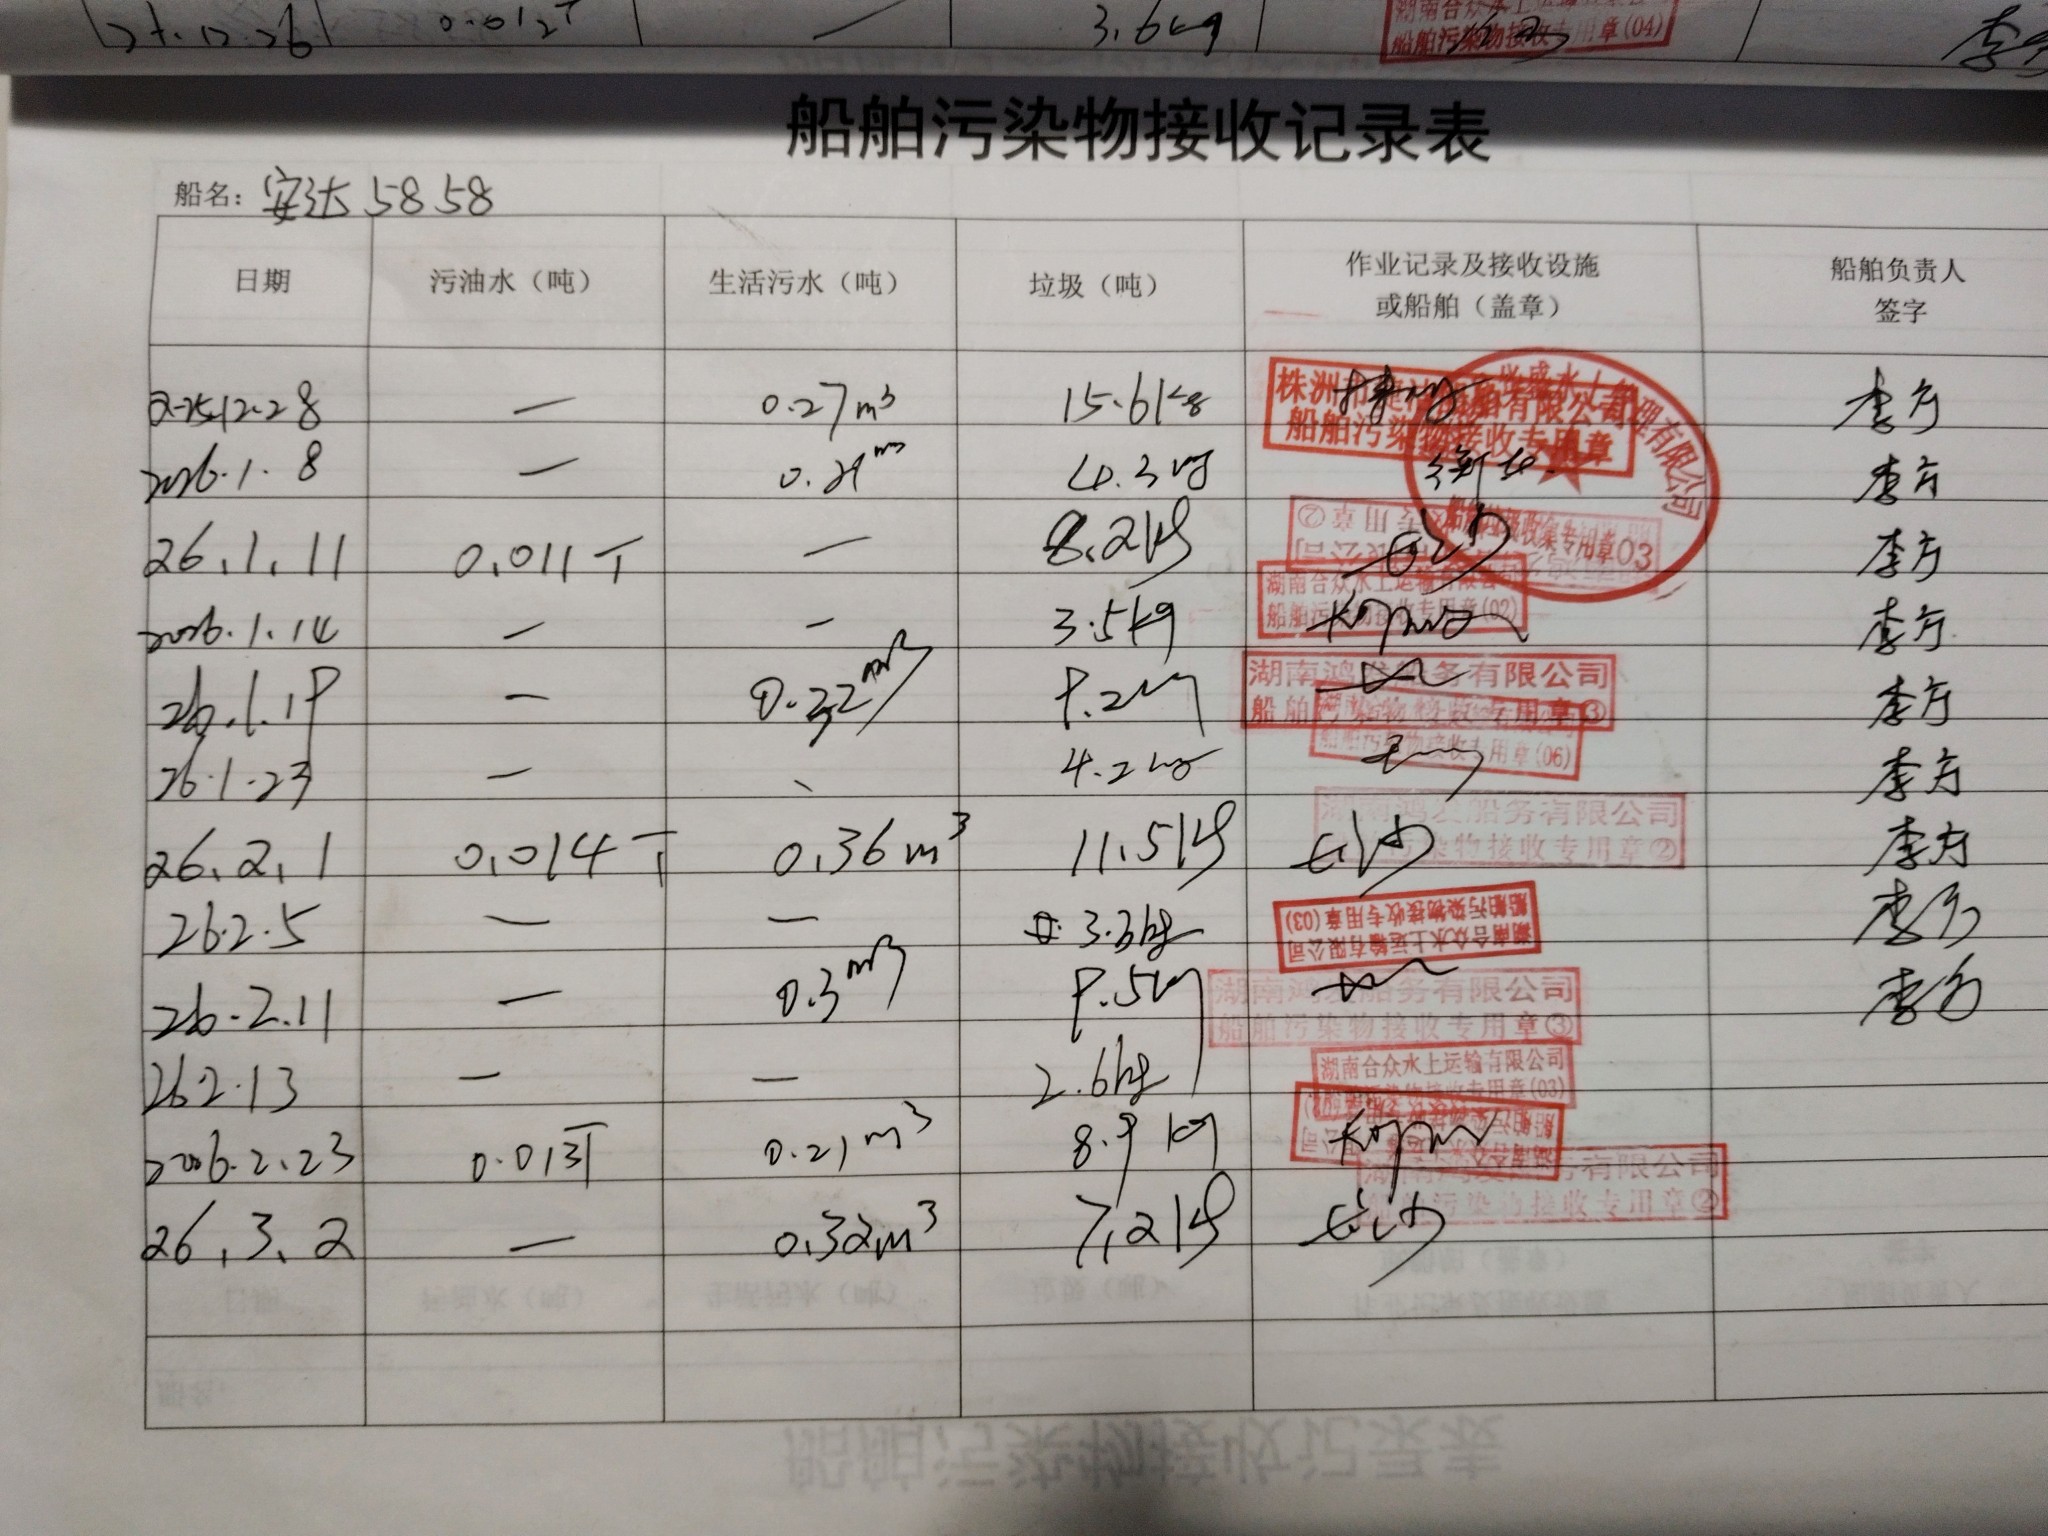 25.12.26 0.012T — 3.6kg
船舶污染物接收专用章(04)
船舶污染物接收记录表
船名: 安达5858
日期 污油水（吨） 生活污水（吨） 垃圾（吨） 作业记录及接收设施 船舶负责人
或船舶（盖章） 签字
2025.12.28 — 0.27m³ 15.6kg 李方
船舶污染物接收专用章
2026.1.8 — m³ 4.3kg 李方
26.1.11 0.011T — 8.2kg 长沙 李方
湖南合众水上运输有限公司
船舶污染物接收专用章(02)
2026.1.14 — — 3.5kg 李方
湖南鸿发船务有限公司
船舶污染物接收专用章③
26.1.19 — 0.32m³ 9.2kg 李方
船舶污染物接收专用章(06)
26.1.23 — 、 4.2kg 李方
湖南鸿发船务有限公司
污染物接收专用章②
26.2.1 0.014T 0.36m³ 11.5kg 长沙 李方
26.2.5 — — 3.3kg 李方
湖南合众水上运输有限公司
船舶污染物接收专用章(03)
26.2.11 — 0.3m³ 9.5kg 李方
湖南鸿发船务有限公司
船舶污染物接收专用章③
26.2.13 — — 2.6kg
湖南合众水上运输有限公司
船舶污染物接收专用章(03)
2026.2.23 0.013T 0.21m³ 8.9kg
湖南鸿发船务有限公司
船舶污染物接收专用章②
26.3.2 — 0.32m³ 7.2kg 长沙